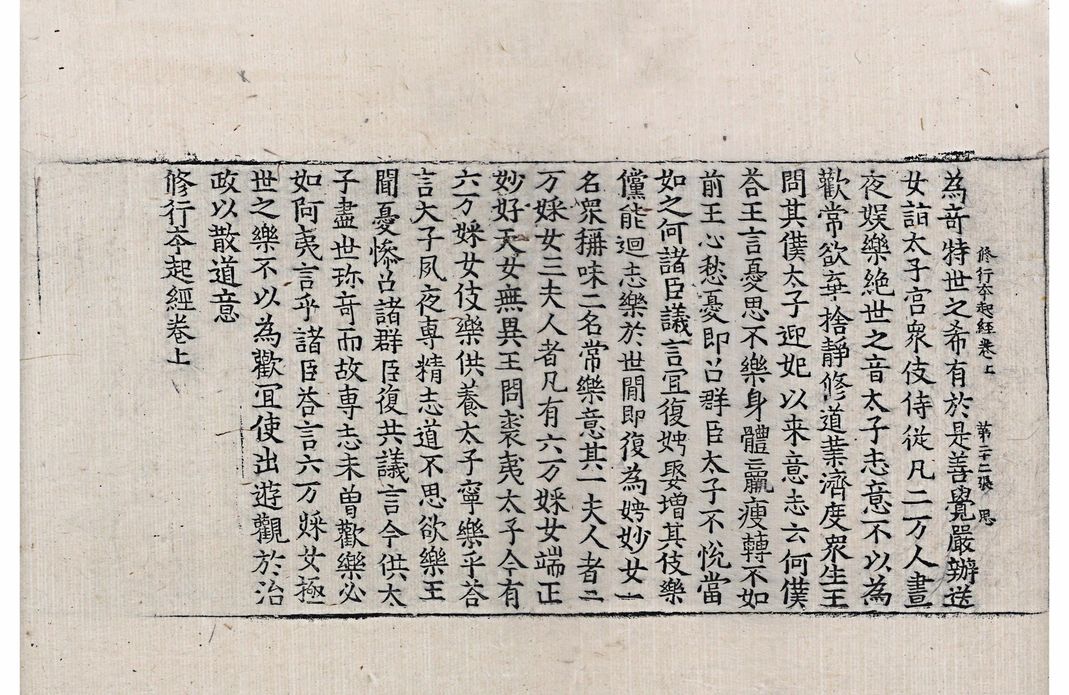 修行夲起經卷上　第二十二張　思
為竒特世之希有於是善覺嚴辦送
女詣太子宮衆伎侍從凡二万人晝
夜娯樂絶世之音太子志意不以為
歡常欲棄捨靜修道業濟度衆生王
問其僕太子迎妃以来意志云何僕
荅王言憂思不樂身體羸瘦轉不如
前王心愁憂即召群臣太子不恱當
如之何諸臣議言冝復娉娶增其伎樂
儻能迴志樂於世閒即復為娉妙女一
名衆稱味二名常樂意其一夫人者二
万婇女三夫人者凡有六万婇女端正
妙好天女無異王問裘夷太子今有
六万婇女伎樂供養太子寧樂乎荅
言大子夙夜専精志道不思欲樂王
聞憂慘召諸群臣復共議言今供太
子盡世珎竒而故専志未曾歡樂必
如阿夷言乎諸臣荅言六万婇女極
世之樂不以為歡冝使出遊觀於治
政以散道意
修行夲起經卷上